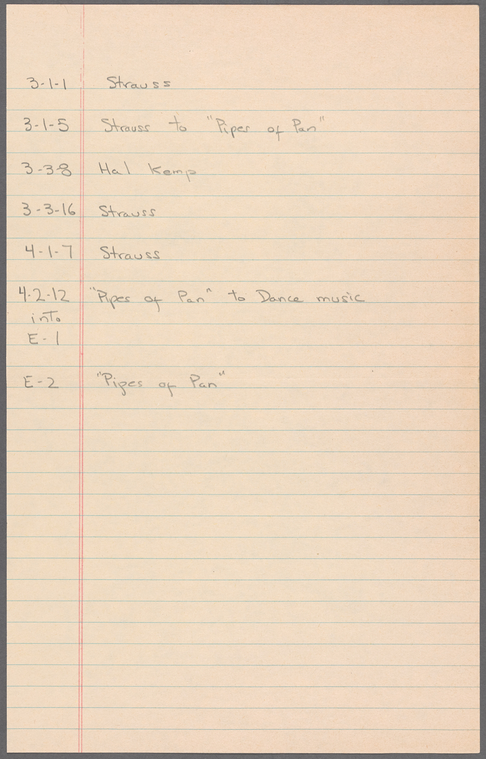 3-1-1 Strauss
3-1-5 Strauss to "Pipes of Pan"
3-3-8 Hal Kemp
3-3-16 Strauss
4-1-7 Strauss
4-2-12 "Pipes of Pan" to Dance music
into
E-1
E-2 "Pipes of Pan"